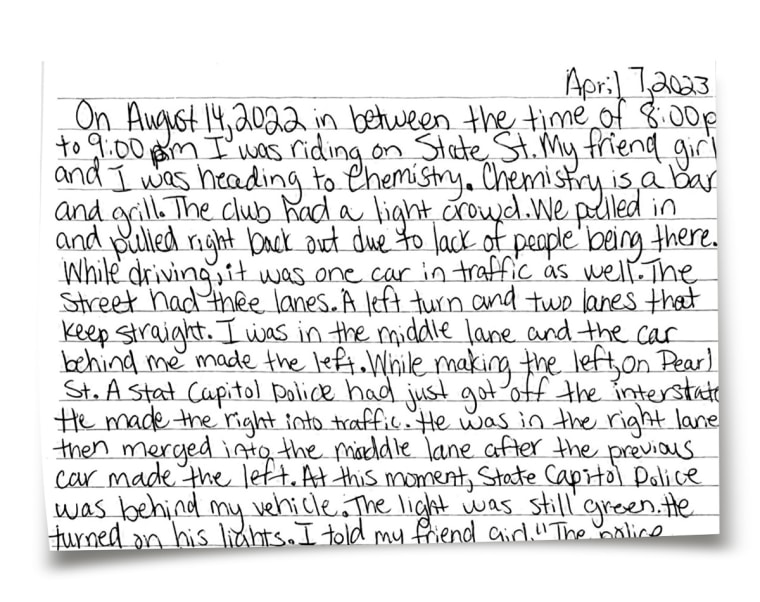 April 7, 2023
On August 14, 2022 in between the time of 8:00p
to 9:00 pm I was riding on State St. My friend girl
and I was heading to Chemistry. Chemistry is a bar
and grill. The club had a light crowd. We pulled in
and pulled right back out due to lack of people being there.
While driving, it was one car in traffic as well. The
street had three lanes. A left turn and two lanes that
keep straight. I was in the middle lane and the car
behind me made the left. While making the left, on Pearl
St. A Stat Capitol Police had just got off the interstate
He made the right into traffic. He was in the right lane
then merged into the middle lane after the previous
car made the left. At this moment, State Capitol Police
was behind my vehicle. The light was still green. He
turned on his lights. I told my friend girl. "The police